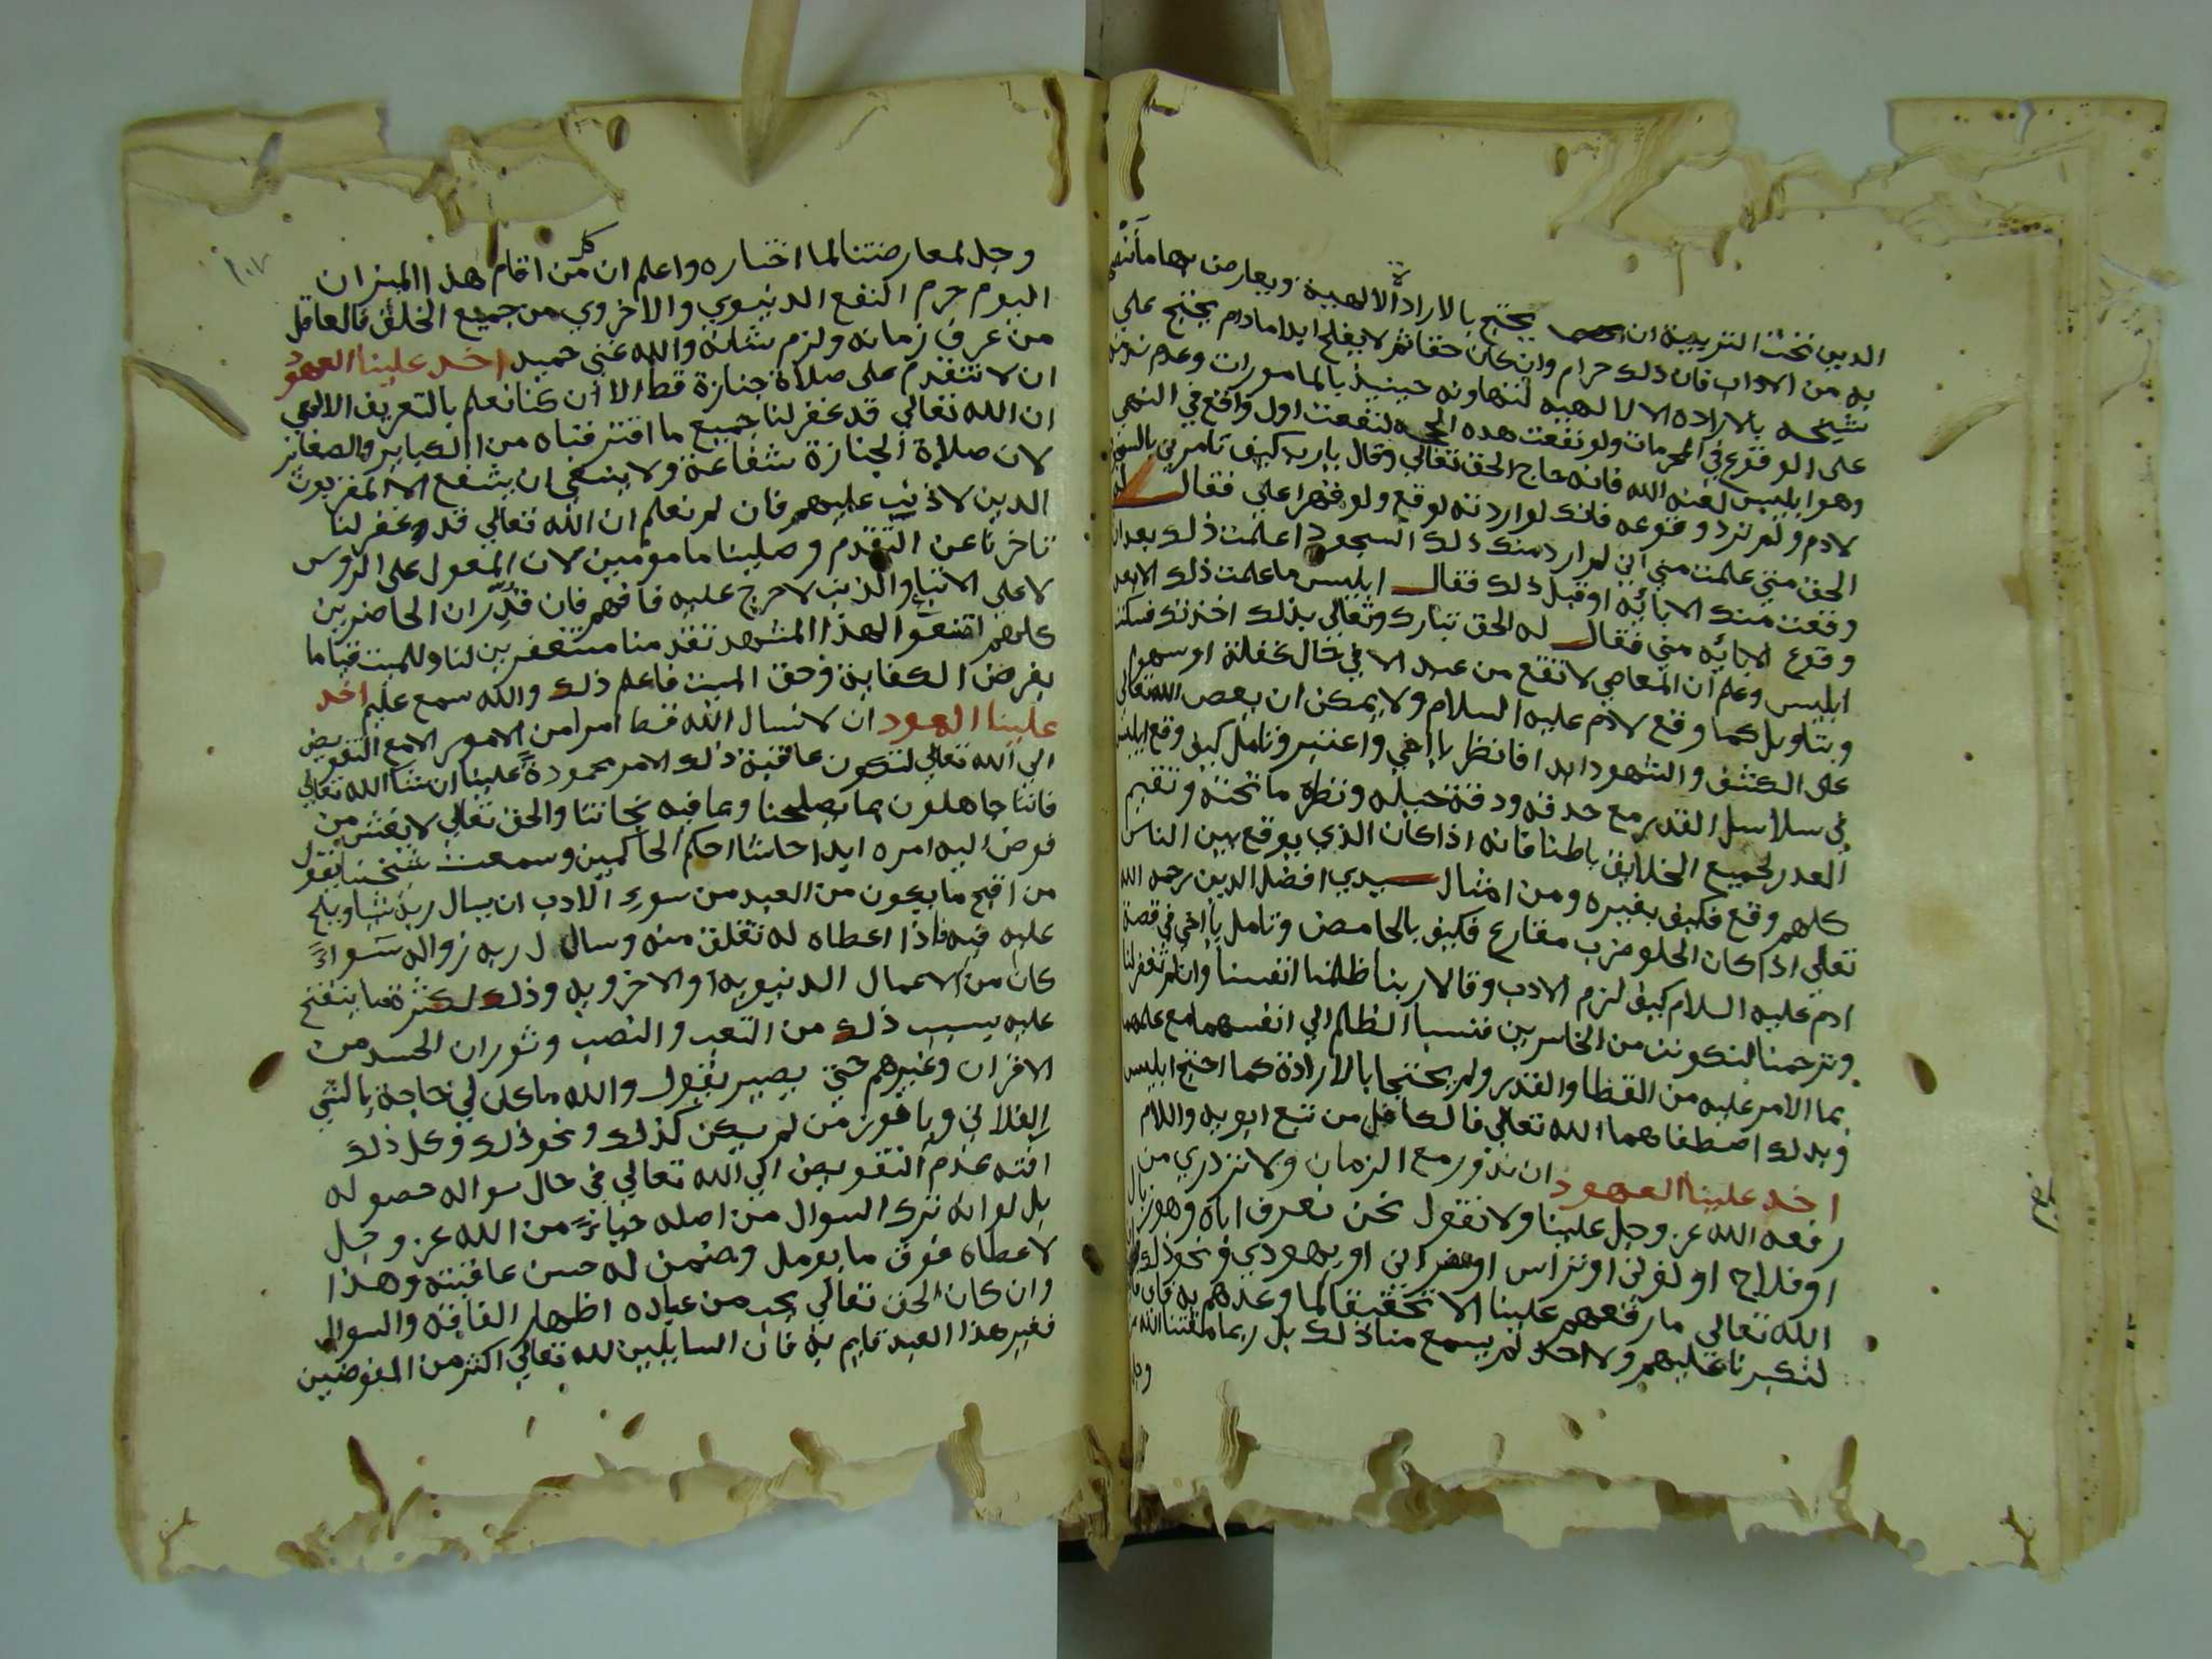 الدين تحت التربية ان يحتج بالارادة الالهية ويعارض بها ما
به من الاداب فان ذلك حرام وان كان حقا ثم لا يفلح ابدا مادام يحتج على
شيخه بالاراده الالهيه لتهاونه حينيذ بالمامورات وعدم ندمه
على الوقوع في المحرمات ولو نفعت هده الحجه لنفعت اول واقع في النهي
وهو ابليس لعنه الله فانه حاج الحق تعالي وقال يارب كيف تامرني بالسجود
لادم ولم ترد وقوعه فانك لو اردته لوقع ولو قهرا علي فقال له
الحق متي علمت مني اني لم ارد منك ذلك السجود اعلمت ذلك بعد ان
وقعت منك الاباية او قبل ذلك فقال ابليس ما علمت ذلك الا بعد
وقوع الاباية مني فقال له الحق تبارك وتعالي بذلك اخذتك فسكت
ابليس وعلم ان المعاصي لا تقع من عبد الا في حال غفلة او سهو
وبتاويل كما وقع لادم عليه السلام ولا يمكن ان يعص الله تعالى
على الكشف والشهود ابدا فانظر يا اخي واعتبر وتامل كيف وقع ابليس
في سلاسل القدر مع حدقه ودقة حيله ونظره ما تحته وتقيم
العدر لجميع الخلايق باطنا فانه اذا كان الذي يوقع بين الناس
كلهم وقع فكيف بغيره ومن امثال سيدي افضل الدين رحمه الله
تعالي اذا كان الحلو ضرب مقارع فكيف بالحامض وتامل يا اخي في قصة
ادم عليه السلام كيف لزم الادب وقالا ربنا ظلمنا انفسنا وان لم تغفر لنا
وترحمنا لنكونن من الخاسرين فنسبا الظلم الي انفسهما مع علمهما
بما الامر عليه من القضا والقدر ولم يحتجا بالارادة كما احتج ابليس
وبدلك اصطفاهما الله تعالي فالكامل من تبع ابويه والسلام
اخد علينا العهود ان ندور مع الزمان ولا نزدري من
رفعه الله عز وجل علينا ولا نقول نحن نعرف اباه وهو زبال
او فلاح او تراس او نصراني او يهودي ونحو ذلك
الله تعالي ما رفعهم علينا الا تحقيقا لما وعدهم به فان
لتكبرنا عليهم ولا احد لم يسمع منا ذلك بل ربما مقتنا الله
وجل
١٠٧
وجل لمعارضتنا لما اختاره واعلم ان كل من اقام هذا الميزان
اليوم حرم النفع الدنيوي والاخروي من جميع الخلق فالعاقل
من عرف زمانه ولزم شانه والله غني حميد اخد علينا العهود
ان لا نتقدم على صلاة جنازة قط الا ان كنا نعلم بالتعريف الالهي
ان الله تعالي قد غفر لنا جميع ما اقترفناه من الكباير والصغاير
لان صلاة الجنازة شفاعة ولا ينبغي ان يشفع الا المقربون
الدين لا ذنب عليهم فان لم نعلم ان الله تعالي قد غفر لنا
تاخرنا عن التقدم وصلينا مامومين لان المعول على الروس
لا على الاتباع الذين لا حرج عليه فافهم فان قدر ان الحاضرين
كلهم امتنعوا لهذا المشهد تقدمنا مستغفرين لنا وللميت قياما
بفرض الكفاية وحق الميت فاعلم ذلك والله سمع عليم اخد
علينا العهود ان لا نسال الله قط امرا من الامور الا مع التفويض
الي الله تعالي لتكون عاقبة ذلك الامر محمودة علينا ان شا الله تعالي
فاننا جاهلون بما يصلحنا وما فيه نجاتنا والحق تعالي لا يغش من
فوض اليه امره ابدا حاشا احكم الحاكمين وسمعت شيخنا يقول
من اقبح ما يكون من العبد من سوء الادب ان يسال ربه شيا ويلح
عليه فيه فاذا اعطاه له تقلق منه وسال ربه زواله سواءً
كان من الاعمال الدنيويه او الاخرويه وذلك لكثرة ما ينفتح
عليه بسبب ذلك من التعب والنصب وثوران الحسد من
الاقران وغيرهم حتي يصير يقول والله ما كان لي حاجة بالشي
الفلاني ويا فوز من لم يكن كذلك ونحو ذلك وكل ذلك
افته عدم التفويض الي الله تعالي في حال سواله حصوله
بل لو انه ترك السوال من اصله حياءً من الله عز وجل
لاعطاه فوق ما يومل وضمن له حسن عاقبته وهذا
وان كان الحق تعالي يحب من عباده اظهار الفاقه والسوال
فغير هذا العبد قايم به فان السايلين لله تعالي اكثر من المفوضين